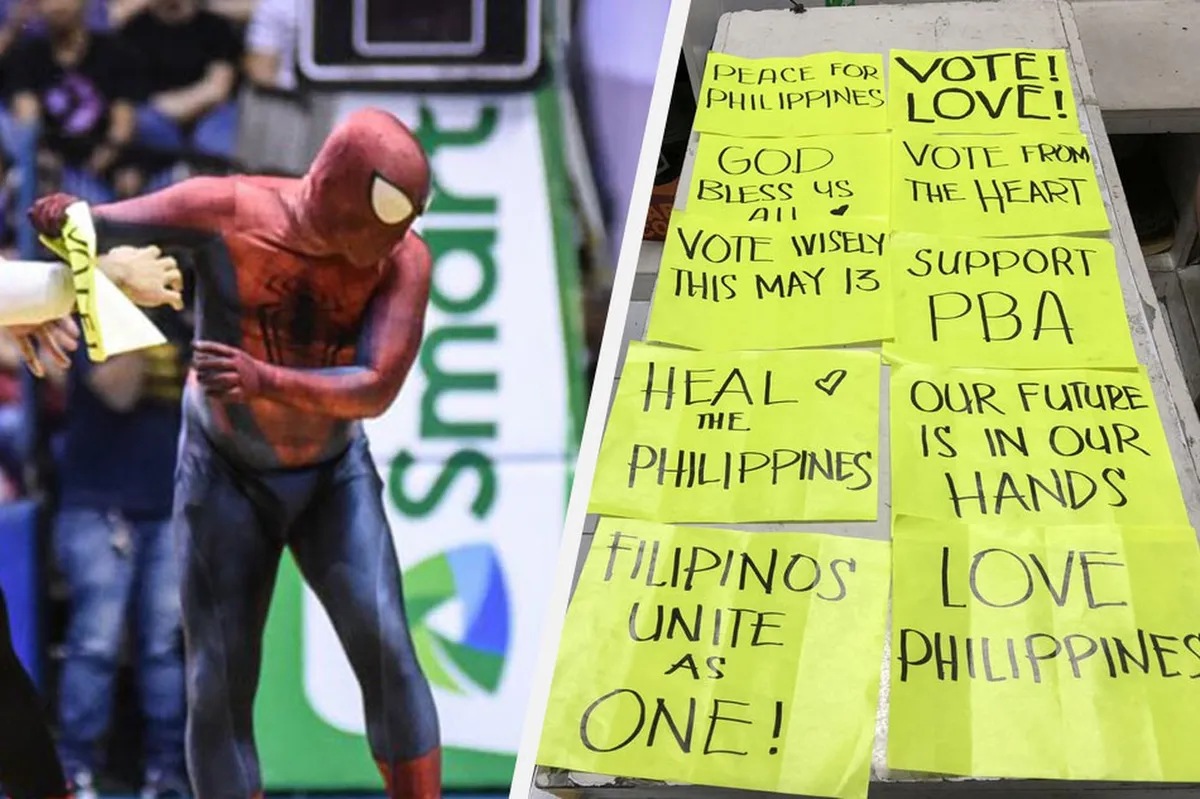 Smart
VOTE!
PEACE FOR
PHILIPPINES
VOTE!
LOVE!
GOD
BLESS US
ALL
VOTE FROM
THE HEART
VOTE WISELY
THIS MAY 13
SUPPORT
PBA
HEAL
THE
PHILIPPINES
OUR FUTURE
IS IN OUR
HANDS
FILIPINOS
UNITE
AS
ONE!
LOVE
PHILIPPINES